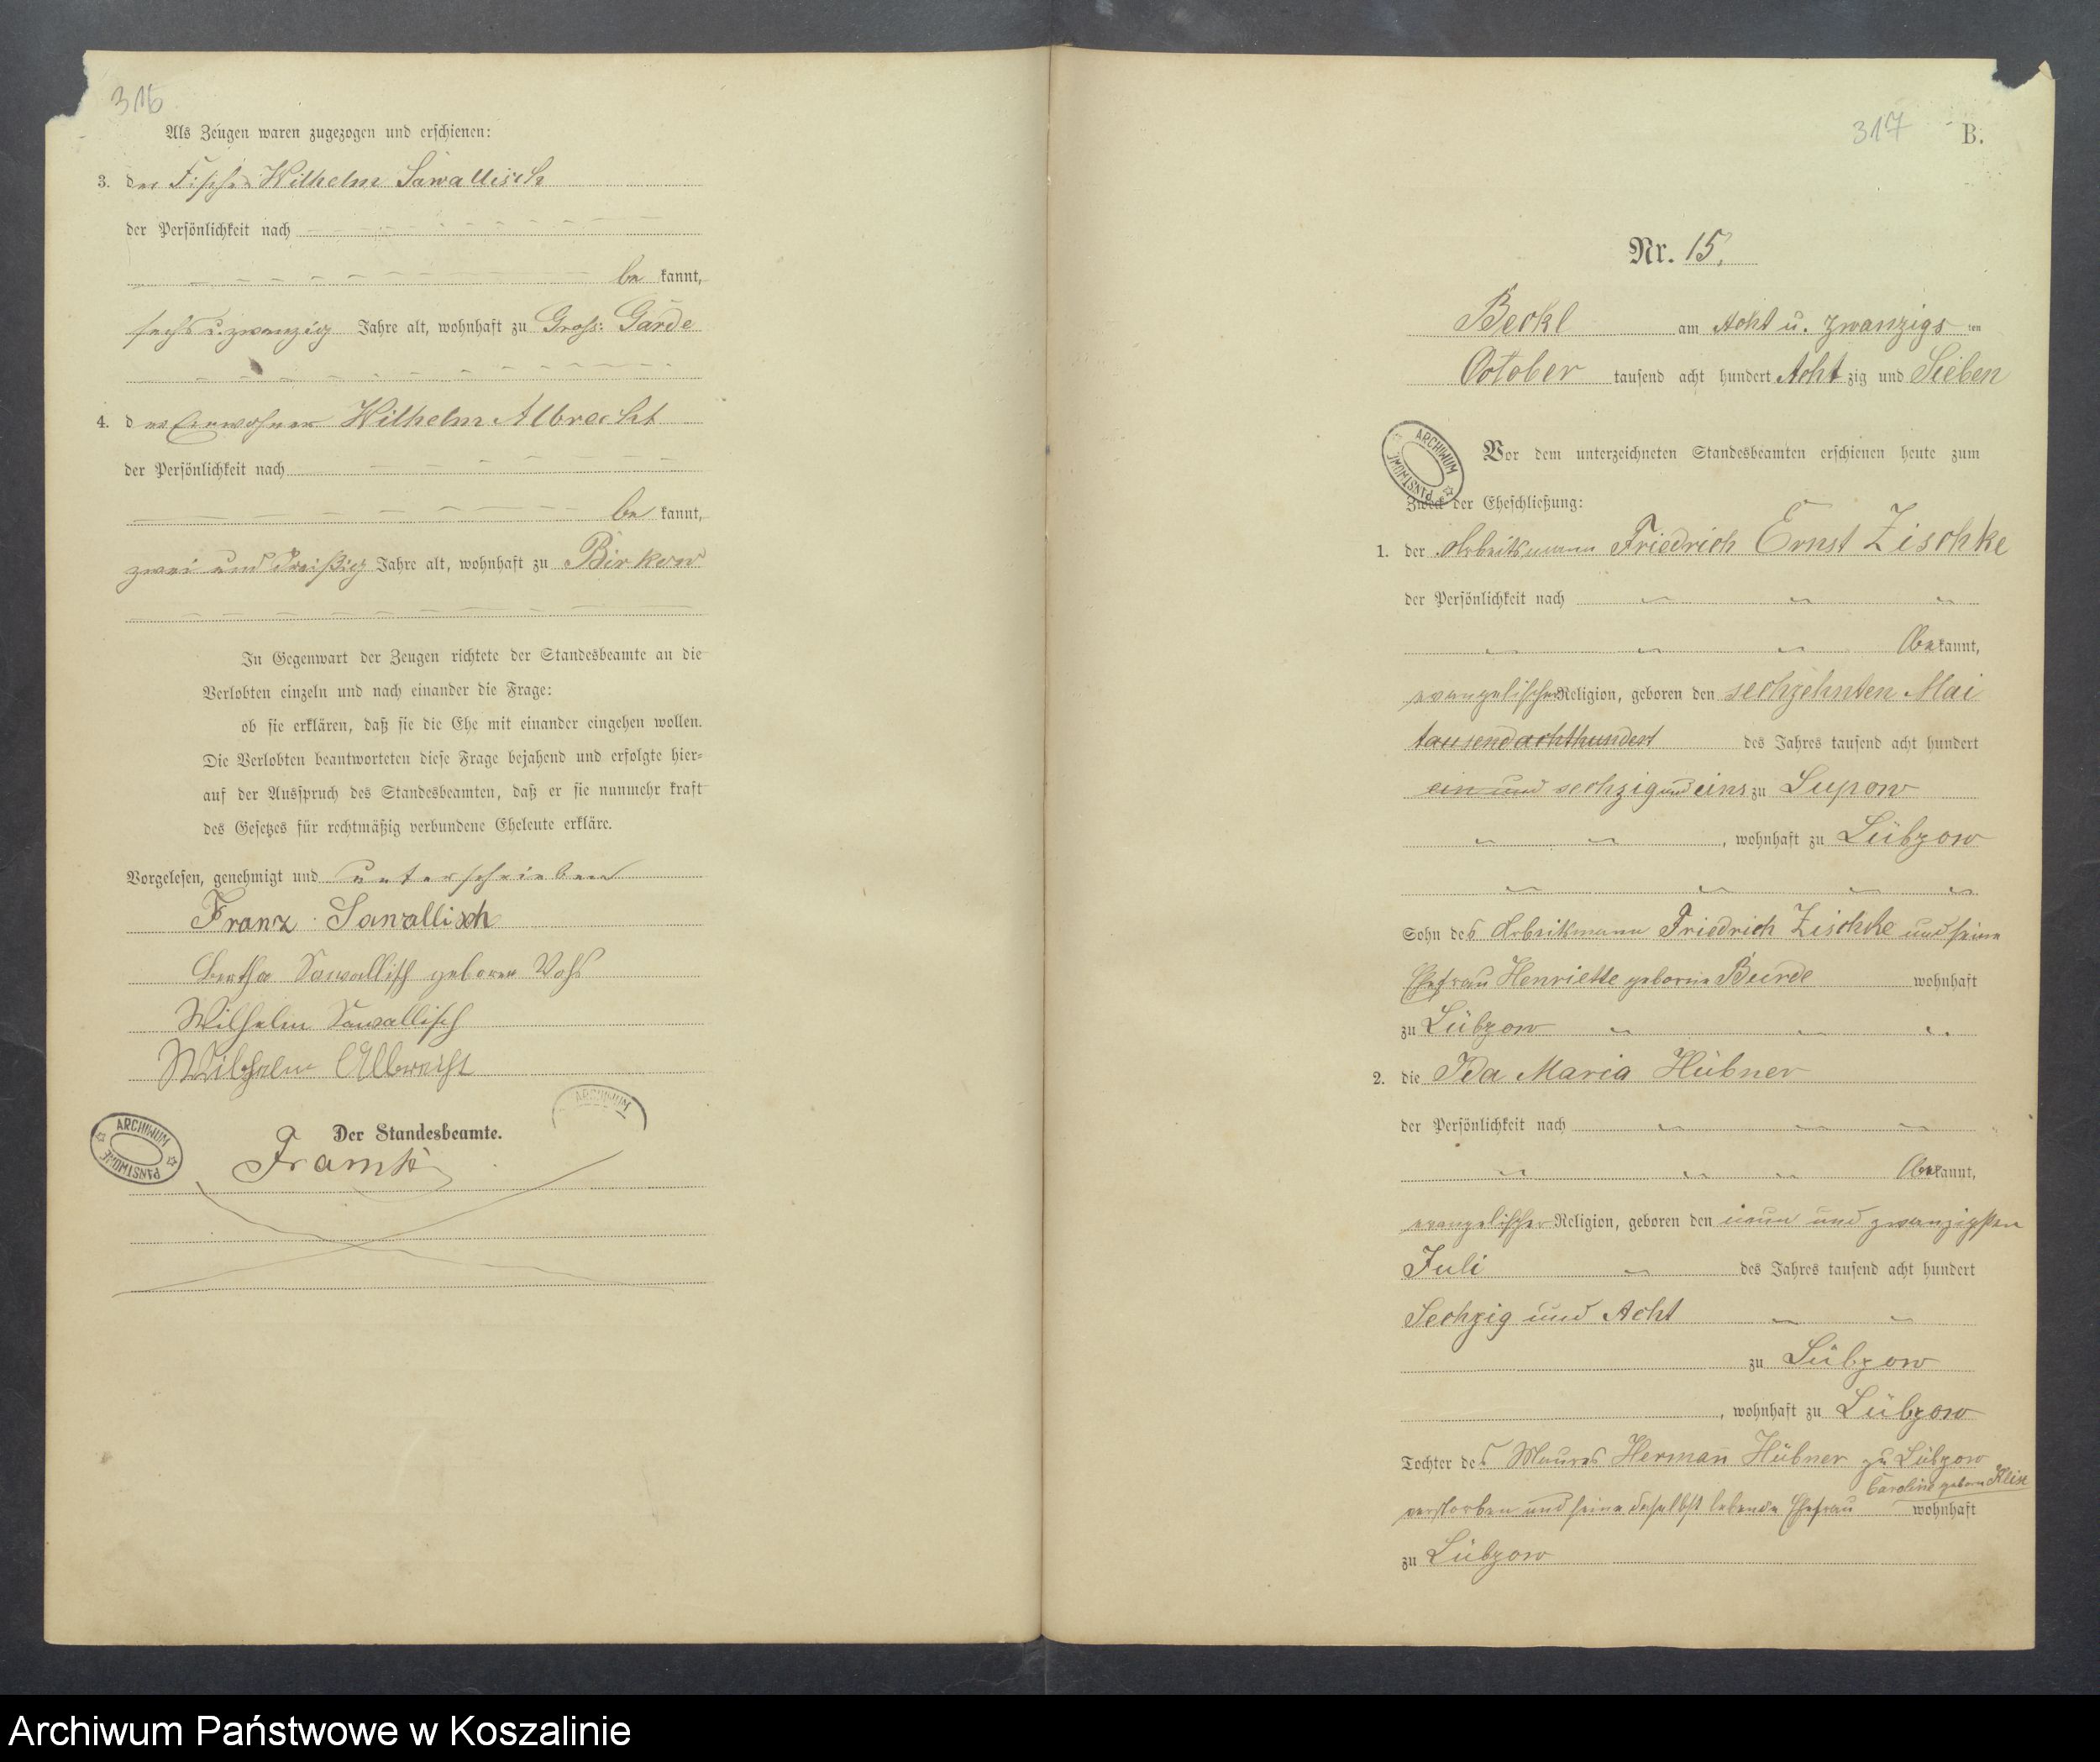 316
Als Zeugen waren zugezogen und erschienen:
3. der Fischer Wilhelm Sawallisch
der Persönlichkeit nach
be kannt,
sechs u. zwanzig Jahre alt, wohnhaft zu Gross: Garde
4. der Einwohner Wilhelm Albrecht
der Persönlichkeit nach
be kannt,
zwei und dreißig Jahre alt, wohnhaft zu Birkow
In Gegenwart der Zeugen richtete der Standesbeamte an die
Verlobten einzeln und nach einander die Frage:
ob sie erklären, daß sie die Ehe mit einander eingehen wollen.
Die Verlobten beantworteten diese Frage bejahend und erfolgte hier-
auf der Ausspruch des Standesbeamten, daß er sie nunmehr kraft
des Gesetzes für rechtmäßig verbundene Eheleute erkläre.
Vorgelesen, genehmigt und unterschrieben
Franz Sawallisch
Bertha Sawallisch geboren Voß
Wilhelm Sawallisch
Wilhelm Albrecht
ARCHIWUM
ARCHIWUM PAŃSTWOWE
Der Standesbeamte.
317 B.
Nr. 15.
am Acht u. zwanzigs ten
October tausend acht hundert Acht zig und Sieben
ARCHIWUM PAŃSTWOWE
Vor dem unterzeichneten Standesbeamten erschienen heute zum
Zweck der Eheschließung:
1. der Arbeitsmann Friedrich Ernst Zischke
der Persönlichkeit nach
be kannt,
evangelischer Religion, geboren den sechzehnten Mai
tausendachthundert des Jahres tausend acht hundert
ein und sechzig und eins zu Lupow
, wohnhaft zu Lübzow
Sohn des Arbeitsmann Friedrich Zischke und seine
Ehefrau Henriette geborne Burde wohnhaft
zu Lübzow
2. die Ida Maria Hübner
der Persönlichkeit nach
be kannt,
evangelischer Religion, geboren den neun und zwanzigsten
Juli des Jahres tausend acht hundert
Sechzig und Acht
zu Lübzow
, wohnhaft zu Lübzow
Tochter des Maurers Hermann Hübner zu Lübzow
Caroline geborn
verstorben und seine daselbst lebende Ehefrau wohnhaft
zu Lübzow
Archiwum Państwowe w Koszalinie